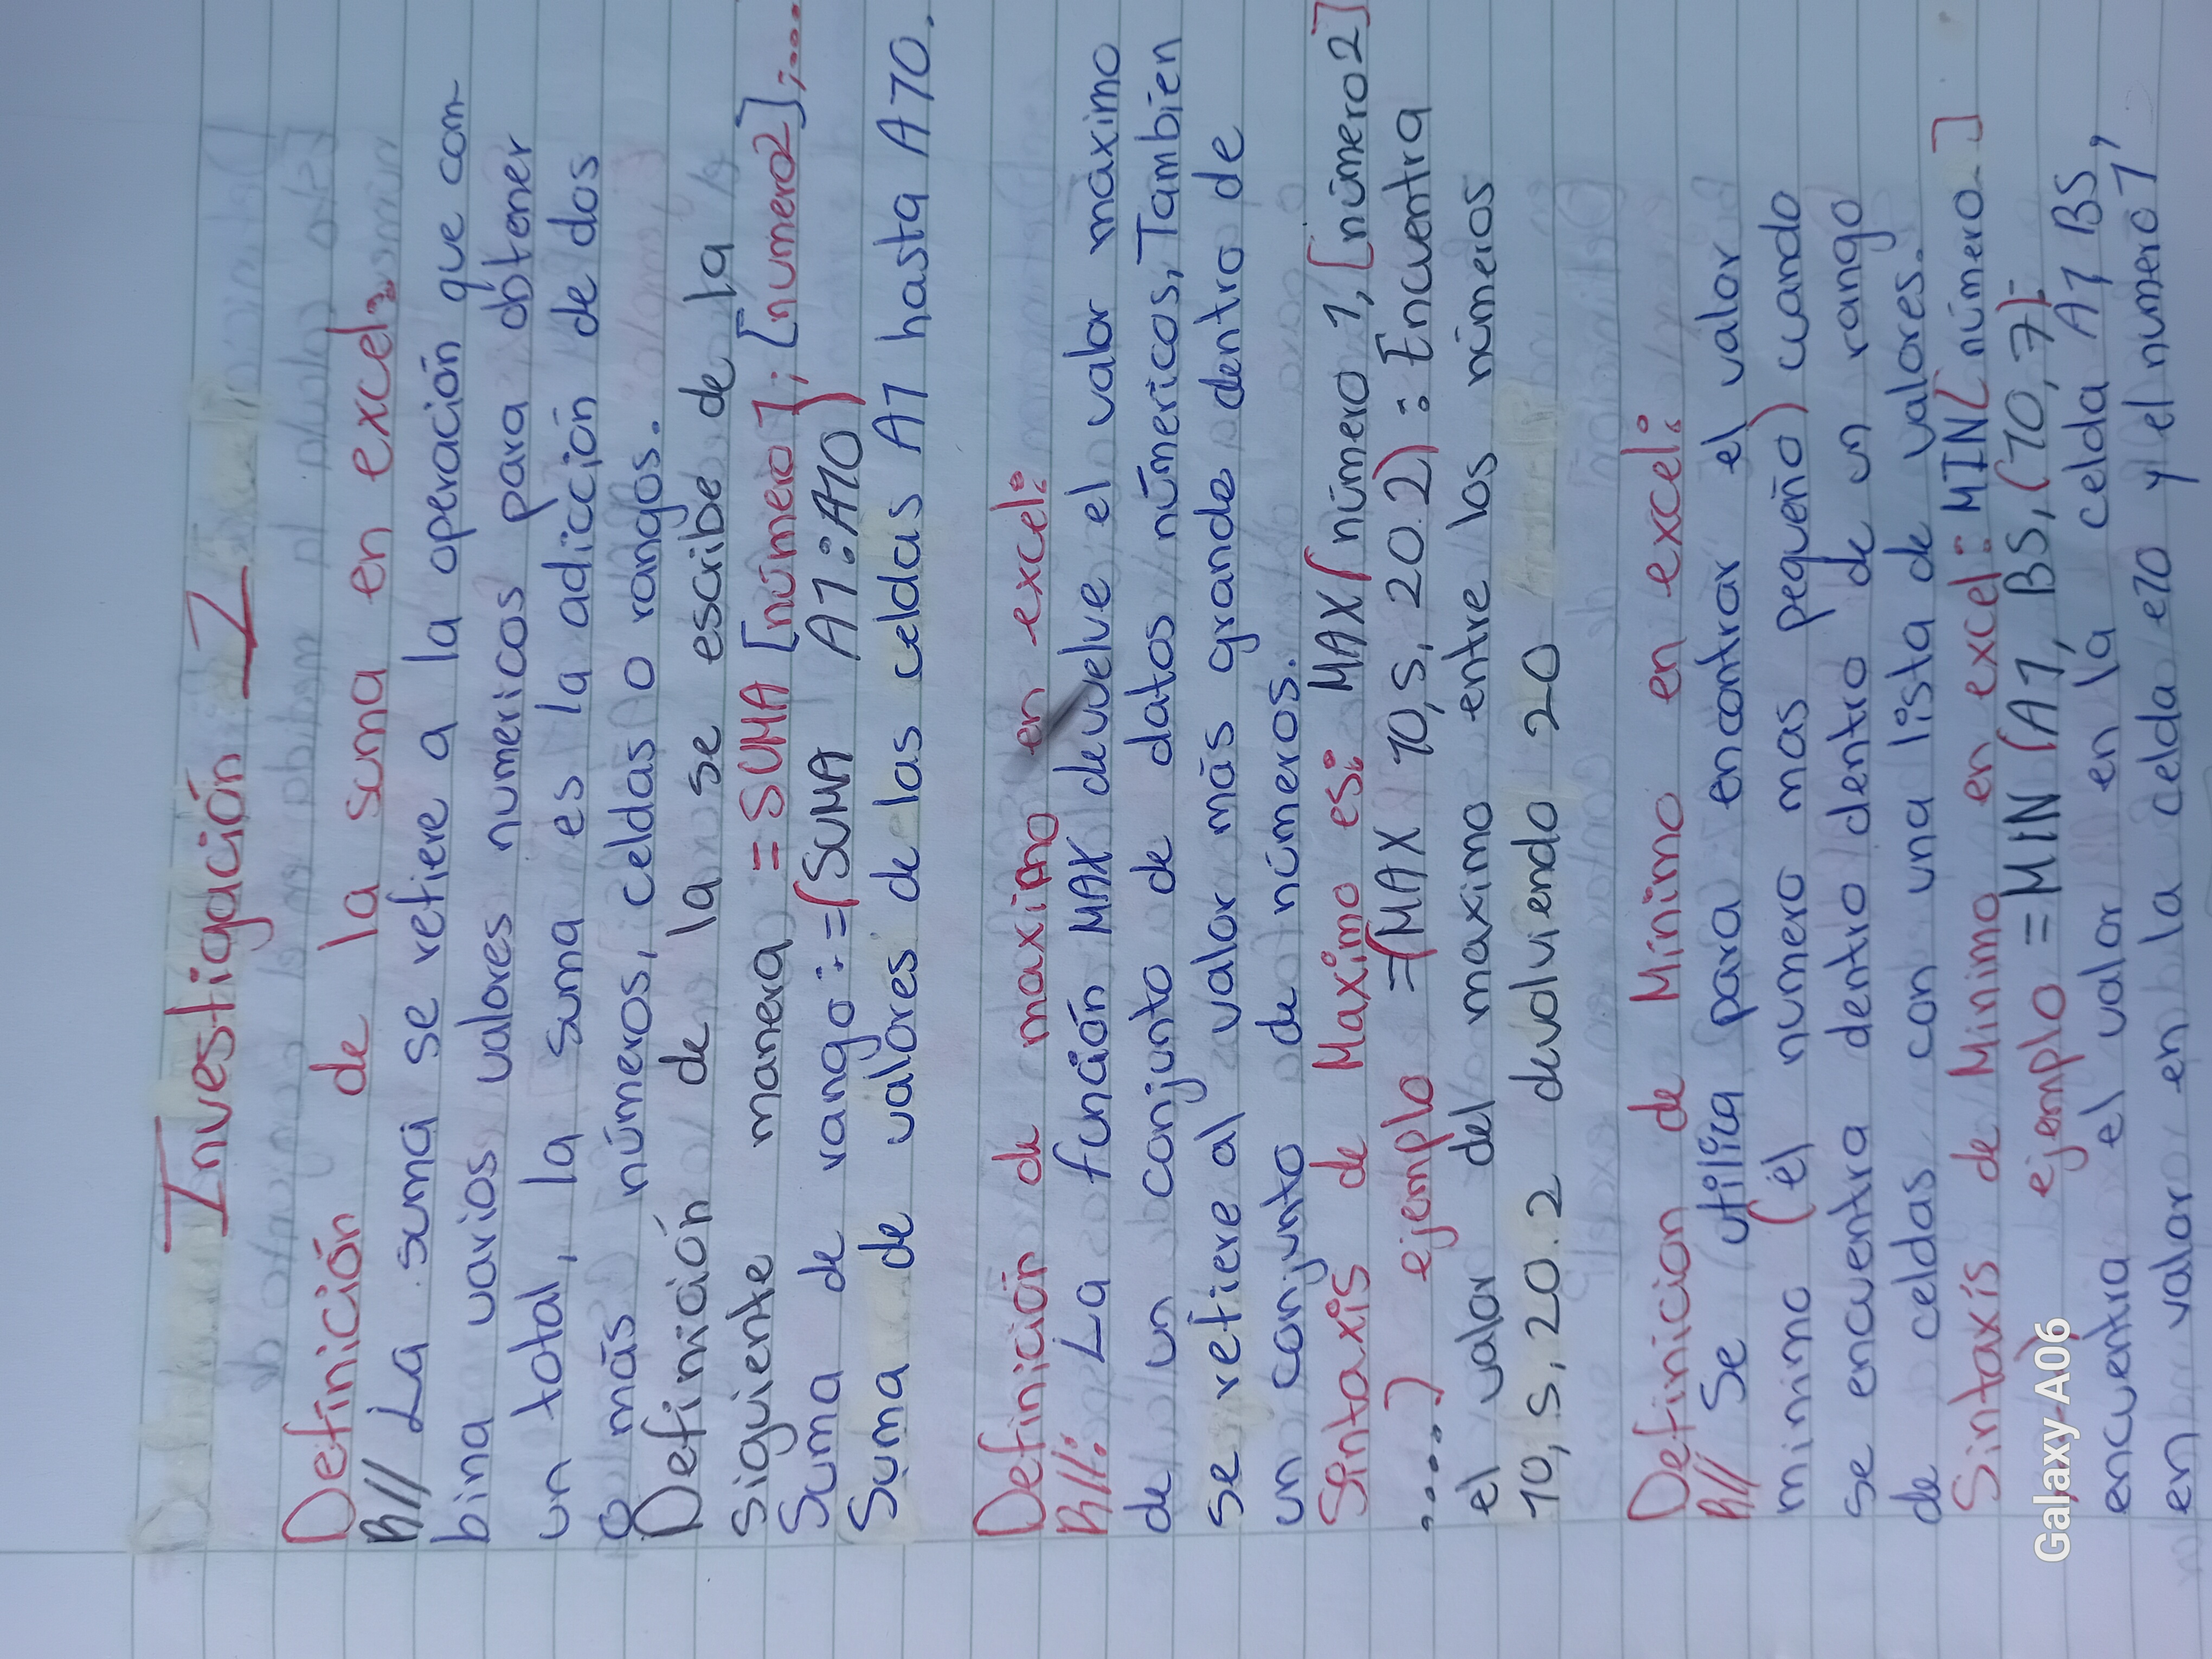 Investigación I
Definición de la suma en excel:
R// La suma se refiere a la operación que com-
bina varios valores numericos para obtener
un total, la suma es la adicción de dos
o más números, celdas o rangos.
Definición de la se escribe de la
siguiente manera = SUMA [número]; [numero2];....
Suma de rango: =(SUMA A1:A10)
Suma de valores de las celdas A1 hasta A10.
Definición de maximo en excel:
R//: La función MAX devuelve el valor maximo
de un conjunto de datos númericos, Tambien
se refiere al valor más grande dentro de
un conjunto de números.
Sintaxis de Maximo es: MAX(número 1,[número2]
.....) ejemplo =(MAX 10,5,20.2): Encuentra
el valor del maximo entre los números
10,5,20.2 devolviendo 20
Definicion de Minimo en excel:
R// Se utiliza para encontrar el valor
minimo (el numero mas pequeño) cuando
se encuentra dentro dentro de un rango
de celdas con una lista de valores.
Sintaxis de Minimo en excel: MIN[número.]
ejemplo =MIN (A1, B5,(10,7):
encuentra el valor en la celda A1 B5,
en valor en la celda e10 y el numero 7,
Galaxy A06